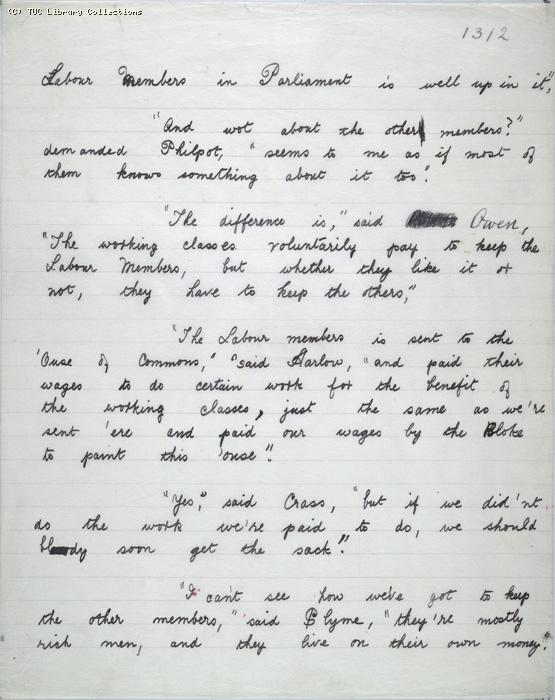 (C) TUC Library Collections
1312
Labour Members in Parliament is well up in it",
"And wot about the other members?"
demanded Philpot, "seems to me as if most of
them knows something about it too".
"The difference is," said Owen,
"The working classes voluntarily pay to keep the
Labour Members, but whether they like it or
not, they have to keep the others,"
"The Labour members is sent to the
'Ouse of Commons," said Harlow, "and paid their
wages to do certain work for the benefit of
the working classes, just the same as we're
sent 'ere and paid our wages by the Bloke
to paint this 'ouse".
"Yes", said Crass, "but if we did'nt
do the work we're paid to do, we should
bloody soon get the sack".
"I can't see how we've got to keep
the other members," said Slyme, "they're mostly
rich men, and they live on their own money".